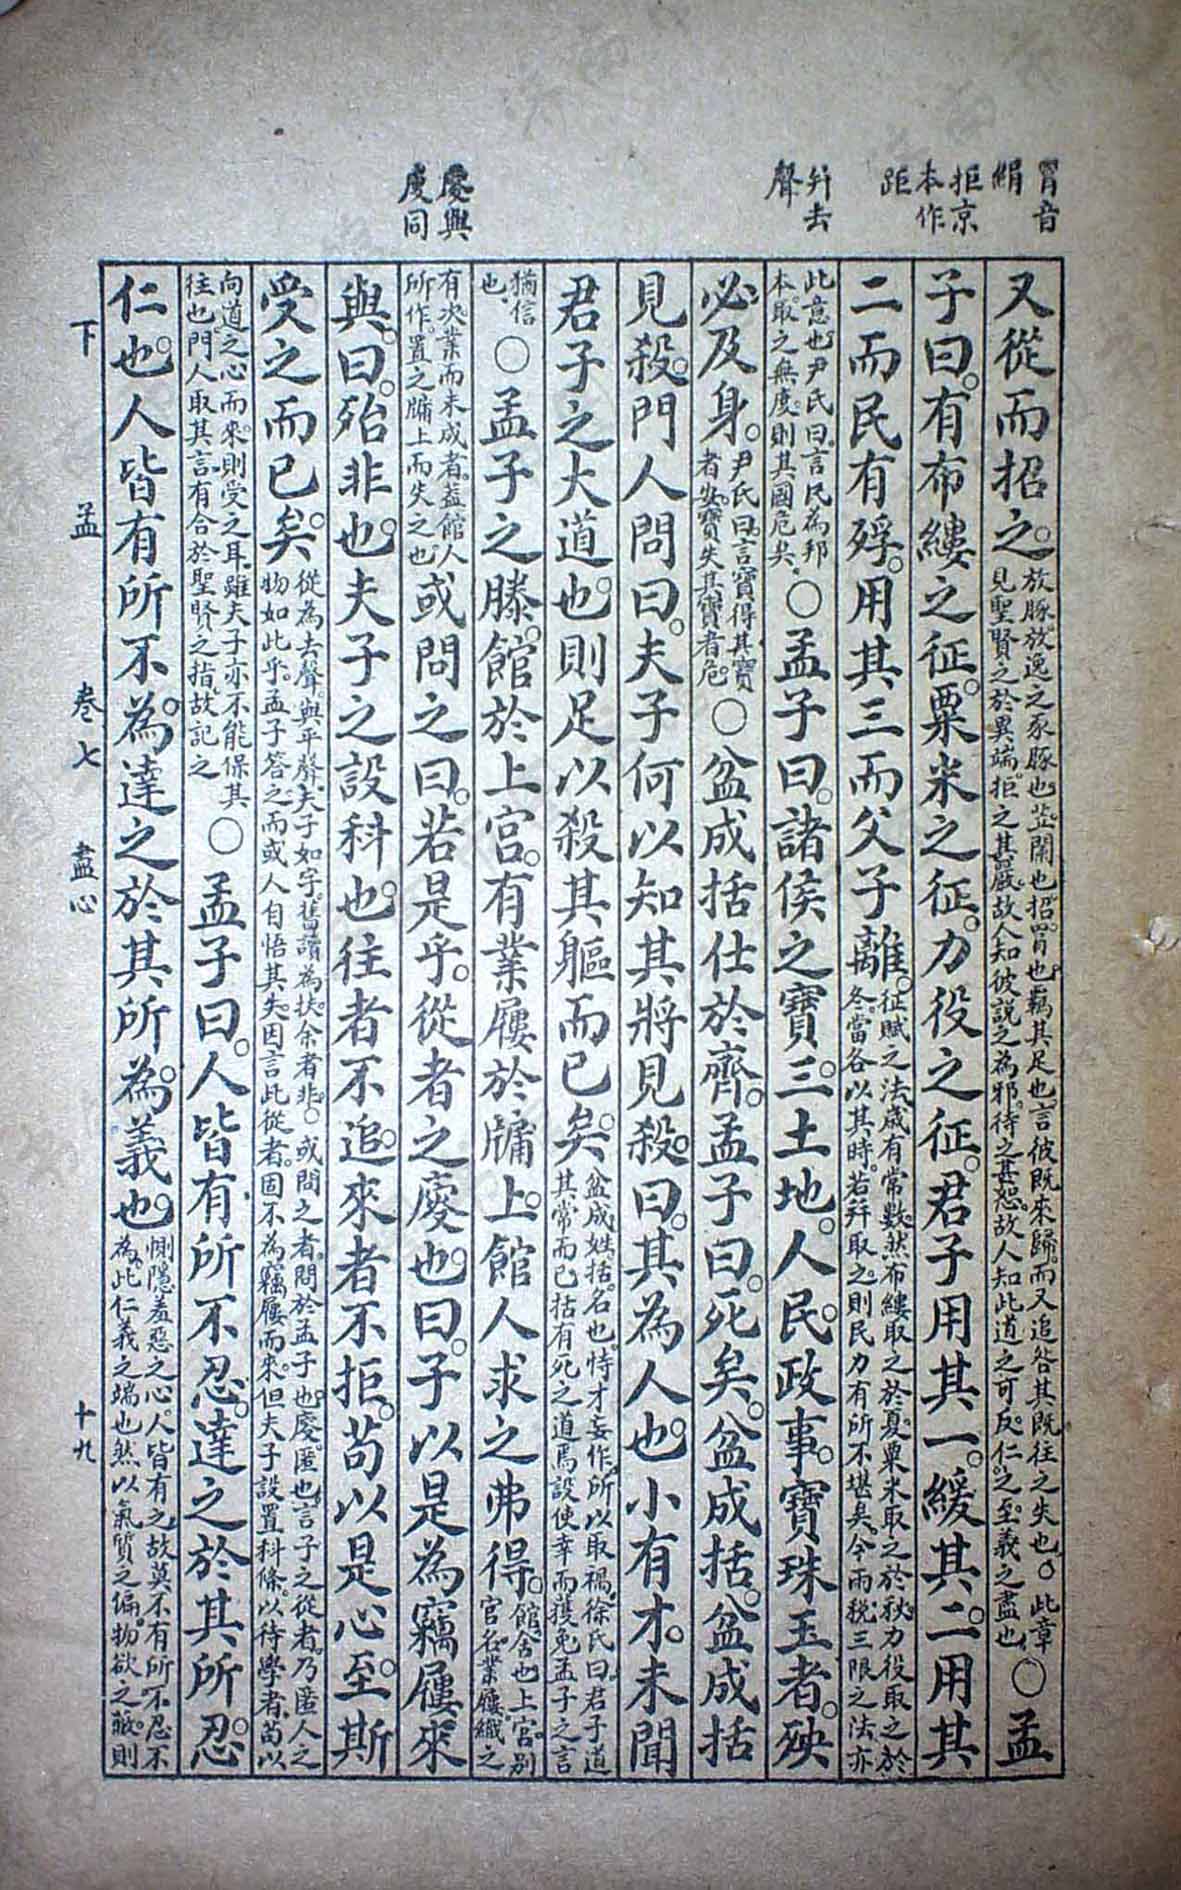 罥音
絹
拒京
本作
距
幷去
聲
廋與
廀同
又從而招之。放豚放逸之豕豚也苙闌也招罥也羈其足也言彼既來歸而又追咎其既往之失也○此章見聖賢之於異端拒之甚嚴故人知彼說之為邪待之甚恕故人知此道之可反仁之至義之盡也○孟
子曰。有布縷之征。粟米之征。力役之征。君子用其一。緩其二。用其
二而民有殍。用其三而父子離。征賦之法歲有常數然布縷取之於夏粟米取之於秋力役取之於冬當各以其時若幷取之則民力有所不堪矣今兩稅三限之法亦
此意也尹氏曰言民為邦本取之無度則其國危矣○孟子曰。諸侯之寶三。土地。人民。政事。寶珠玉者。殃
必及身。尹氏曰言寶得其寶者安寶失其寶者危○盆成括仕於齊。孟子曰。死矣。盆成括。盆成括
見殺。門人問曰。夫子何以知其將見殺。曰。其為人也。小有才。未聞
君子之大道也。則足以殺其軀而已矣。盆成姓括名也恃才妄作所以取禍徐氏曰君子道其常而已括有死之道焉設使幸而獲免孟子之言
猶信也○孟子之滕。館於上宮。有業屨於牖上。館人求之弗得。館舍也上宮別宮名業屨織之
有次業而未成者葢館人所作置之牖上而失之也或問之曰。若是乎。從者之廋也。曰。子以是為竊屨來
與。曰。殆非也。夫子之設科也。往者不追。來者不拒。苟以是心至。斯
受之而已矣。從為去聲與平聲夫子如字舊讀為扶余者非○或問之者問於孟子也廋匿也言子之從者乃匿人之物如此乎孟子答之而或人自悟其失因言此從者固不為竊屨而來但夫子設置科條以待學者苟以
向道之心而來則受之耳雖夫子亦不能保其往也門人取其言有合於聖賢之指故記之○孟子曰。人皆有所不忍。達之於其所忍。
仁也。人皆有所不為。達之於其所為。義也。惻隱羞惡之心人皆有之故莫不有所不忍不為此仁義之端也然以氣質之偏物欲之蔽則
下　孟　卷七　盡心　十九